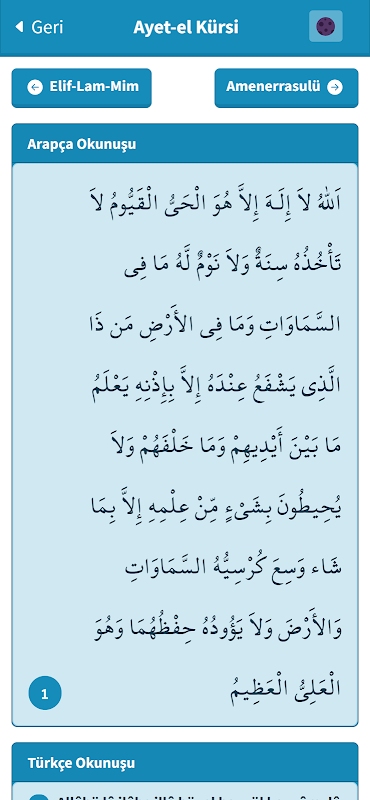 Geri
Ayet-el Kürsi
Elif-Lam-Mim
Amenerrasulü
Arapça Okunuşu
اَللهُ لاَ إِلَـهَ إِلاَّ هُوَ الْحَيُّ الْقَيُّومُ لاَ
تَأْخُذُهُ سِنَةٌ وَلاَ نَوْمٌ لَّهُ مَا فِى
السَّمَاوَاتِ وَمَا فِى الأَرْضِ مَن ذَا
الَّذِى يَشْفَعُ عِنْدَهُ إِلاَّ بِإِذْنِهِ يَعْلَمُ
مَا بَيْنَ أَيْدِيهِمْ وَمَا خَلْفَهُمْ وَلاَ
يُحِيطُونَ بِشَىْءٍ مِّنْ عِلْمِهِ إِلاَّ بِمَا
شَاء وَسِعَ كُرْسِيُّهُ السَّمَاوَاتِ
وَالأَرْضَ وَلاَ يَؤُودُهُ حِفْظُهُمَا وَهُوَ
الْعَلِىُّ الْعَظِيمُ
1
Türkçe Okunuşu